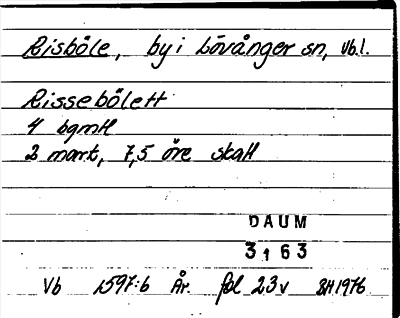 Risböle, by i Lövånger sn, Vb.l.
Rissebölett
4 bgmtl
2 mart, 7,5 öre skatt
DAUM
3163
Vb 1597:6 År. fol 23v BH1976